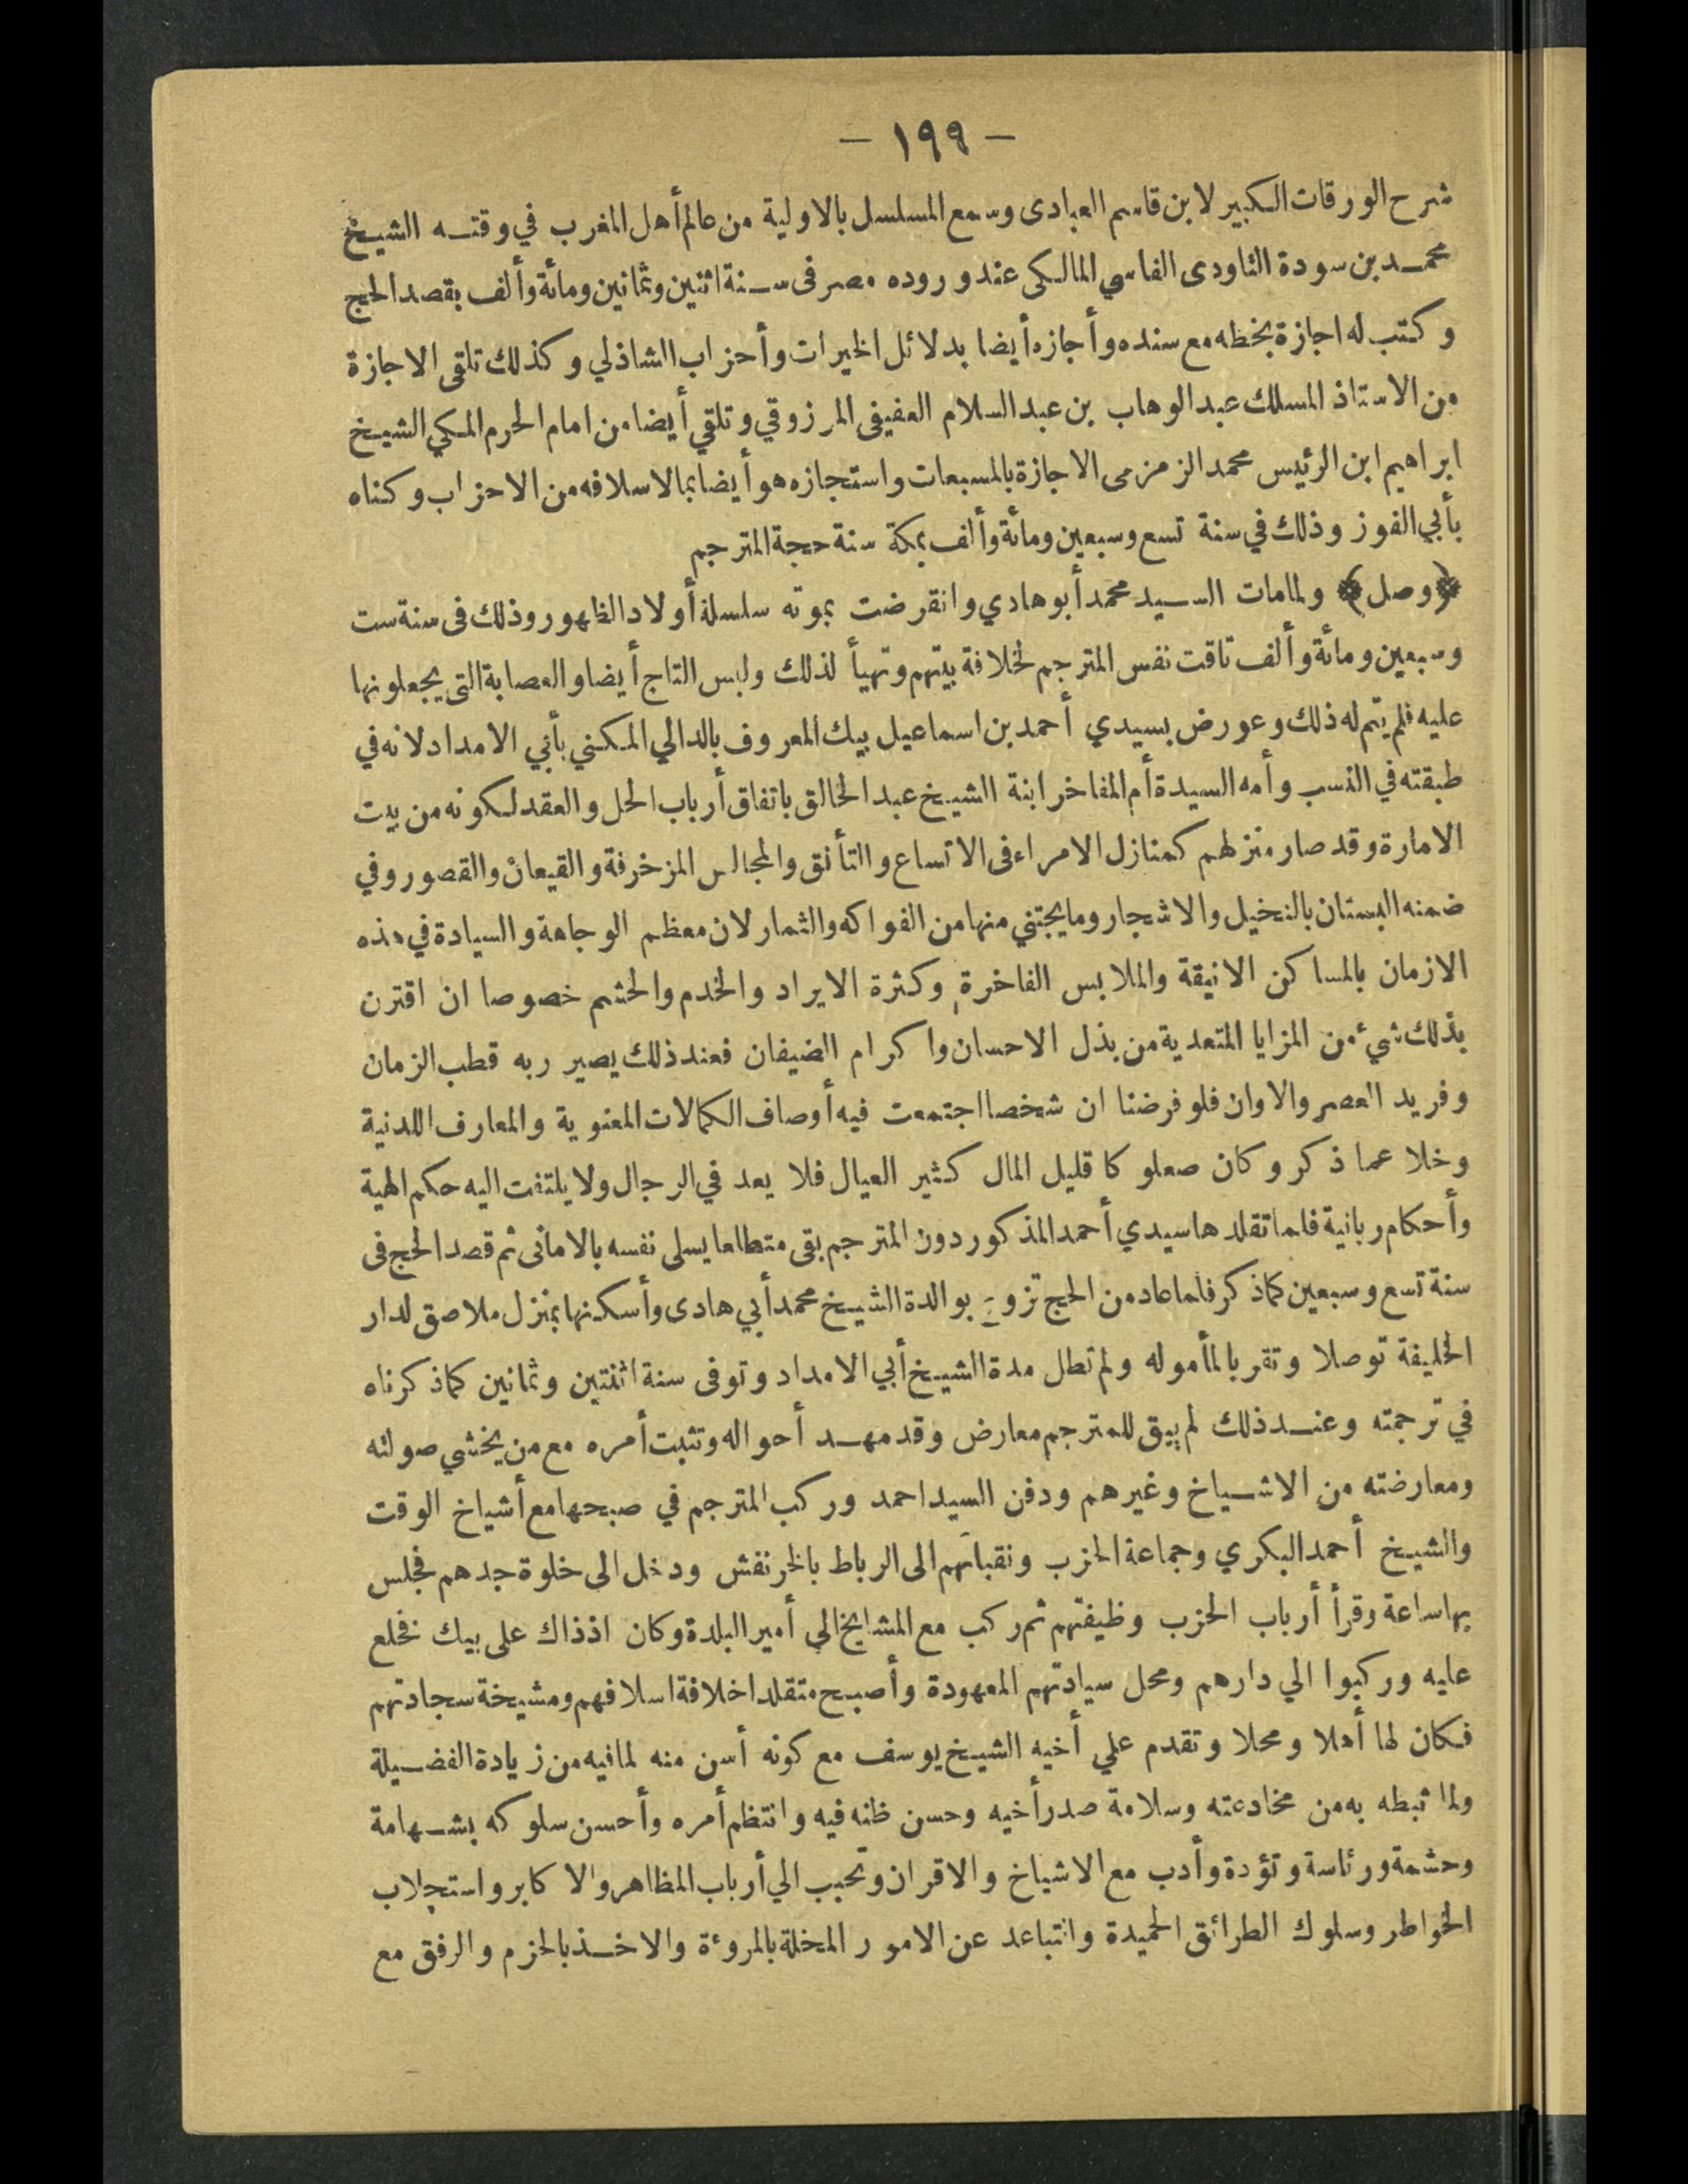 — ١٩٩ —
شرح الورقات الكبير لابن قاسم العبادى وسمع المسلسل بالاولية من عالم أهل المغرب في وقتـه الشيخ
محمـد بن سودة التاودى الفاسي المالكى عند وروده مصر فى سـنة اثنين وثمانين ومائة وألف بقصد الحج
وكتب له اجازة بخطه مع سنده وأجازه أيضا بدلائل الخيرات وأحزاب الشاذلي وكذلك تلقى الاجازة
من الاستاذ المسلك عبد الوهاب بن عبد السلام العفيفى المرزوقي وتلقي أيضا من امام الحرم المكي الشيخ
ابراهيم ابن الرئيس محمد الزمزمى الاجازة بالمسبعات واستجازه هو أيضا بما لاسلافه من الاحزاب وكناه
بأبي الفوز وذلك في سنة تسع وسبعين ومائة وألف بمكة سنة حجة المترجم
﴿وصل﴾ ولما مات السـيد محمد أبو هادي وانقرضت بموته سلسلة أولاد الظهور وذلك فى سنة ست
وسبعين ومائة وألف تاقت نفس المترجم لخلافة بيتهم وتهيأ لذلك ولبس التاج أيضا والعصابة التى يجعلونها
عليه فلم يتم له ذلك وعورض بسيدي أحمد بن اسماعيل بيك المعروف بالدالي المكني بأبي الامداد لانه في
طبقته في النسب وأمه السيدة أم المفاخر ابنة الشيخ عبد الخالق باتفاق أرباب الحل والعقد لكونه من بيت
الامارة وقد صار منزلهم كمنازل الامراء فى الاتساع والتأنق والمجالس المزخرفة والقيعان والقصور وفي
ضمنه البستان بالنخيل والاشجار وما يجتني منها من الفواكه والثمار لان معظم الوجاهة والسيادة في هذه
الازمان بالمساكن الانيقة والملابس الفاخرة وكثرة الايراد والخدم والحشم خصوصا ان اقترن
بذلك شيء من المزايا المتعدية من بذل الاحسان واكرام الضيفان فعند ذلك يصير ربه قطب الزمان
وفريد العصر والاوان فلو فرضنا ان شخصا اجتمعت فيه أوصاف الكمالات المعنوية والمعارف اللدنية
وخلا عما ذكر وكان صعلوكا قليل المال كثير العيال فلا يعد في الرجال ولا يلتفت اليه حكم الهية
وأحكام ربانية فلما تقلدها سيدي أحمد المذكور دون المترجم بقى متطلعا يسلى نفسه بالامانى ثم قصد الحج فى
سنة تسع وسبعين كما ذكر فلما عاد من الحج تزوج بوالدة الشيخ محمد أبي هادى وأسكنها بمنزل ملاصق لدار
الخليفة توصلا وتقربا لمأموله ولم تطل مدة الشيخ أبي الامداد وتوفى سنة اثنتين وثمانين كما ذكرناه
في ترجمته وعنـد ذلك لم يبق للمترجم معارض وقد مهـد أحواله وتثبت أمره مع من يخشي صولته
ومعارضته من الاشـياخ وغيرهم ودفن السيد احمد وركب المترجم في صبحها مع أشياخ الوقت
والشيخ أحمد البكري وجماعة الحزب ونقبائهم الى الرباط بالخرنفش ودخل الى خلوة جدهم فجلس
بها ساعة وقرأ أرباب الحزب وظيفتهم ثم ركب مع المشايخ الي أمير البلدة وكان اذذاك على بيك فخلع
عليه وركبوا الي دارهم ومحل سيادتهم المعهودة وأصبح متقلدا خلافة اسلافهم ومشيخة سجادتهم
فكان لها أهلا ومحلا وتقدم علي أخيه الشيخ يوسف مع كونه أسن منه لما فيه من زيادة الفضـيلة
ولما ثبطه به من مخادعته وسلامة صدر أخيه وحسن ظنه فيه وانتظم أمره وأحسن سلوكه بشـهامة
وحشمة ورئاسة وتؤدة وأدب مع الاشياخ والاقران وتحبب الي أرباب المظاهر والاكابر واستجلاب
الخواطر وسلوك الطرائق الحميدة والتباعد عن الامور المخلة بالمروءة والاخـذ بالحزم والرفق مع